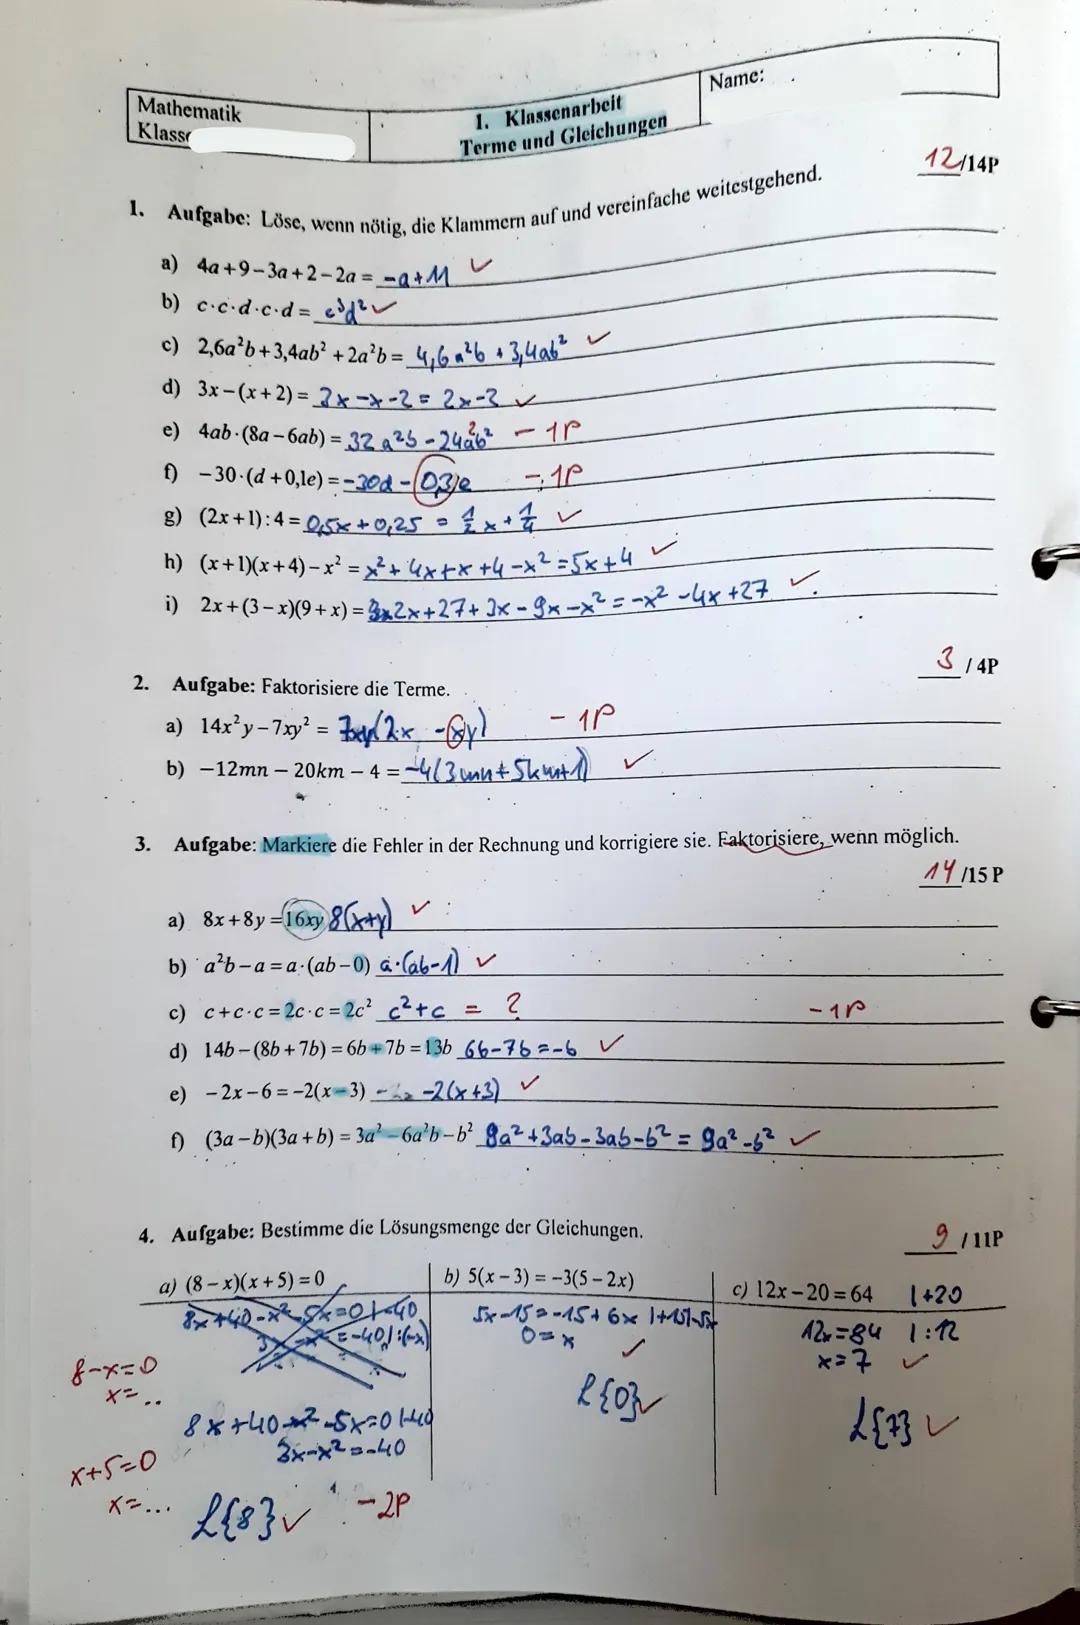 Mathematik
Klasse
1. Klassenarbeit
Terme und Gleichungen
Name:
12/14P
1. Aufgabe: Löse, wenn nötig, die Klammern auf und vereinfache weitestgehend.
a) 4a+9−3a+2−2a = -a+11 ✓
b) c·c·d·c·d = c³d² ✓
c) 2,6a²b+3,4ab²+2a²b = 4,6a²b + 3,4ab² ✓
d) 3x−(x+2) = 3x-x-2 = 2x-2 ✓
e) 4ab·(8a−6ab) = 32a²b - 24a²b² - 1P
f) −30·(d+0,1e) = -30d - 0,3e - 1P
g) (2x+1):4 = 0,5x+0,25 = ½x+¼ ✓
h) (x+1)(x+4)−x² = x²+4x+x+4-x² = 5x+4 ✓
i) 2x+(3−x)(9+x) = 2x+27+3x-9x-x² = -x²-4x+27 ✓
3/4P
2. Aufgabe: Faktorisiere die Terme.
a) 14x²y−7xy² = 7xy(2x -xy) - 1P
b) −12mn − 20km − 4 = -4(3mn+5km+1) ✓
3. Aufgabe: Markiere die Fehler in der Rechnung und korrigiere sie. Faktorisiere, wenn möglich.
14/15 P
a) 8x+8y = 16xy 8(x+y) ✓
b) a²b−a = a·(ab−0) a·(ab-1) ✓
c) c+c·c = 2c·c = 2c² c²+c = ? -1P
d) 14b−(8b+7b) = 6b+7b = 13b 6b-7b = -b ✓
e) −2x−6 = −2(x−3) -2(x+3) ✓
f) (3a−b)(3a+b) = 3a²−6a²b−b² 9a²+3ab-3ab-b² = 9a²-b² ✓
4. Aufgabe: Bestimme die Lösungsmenge der Gleichungen.
9/11P
a) (8−x)(x+5) = 0
8x+40-x²-5x=0 |-40
-x² = -40 |:(-x)
8-x=0
x=..
8x+40-x²-5x=0 |-40
3x-x²=-40
x+5=0
x=...
L{8} ✓ -2P
b) 5(x−3) = −3(5−2x)
5x-15=-15+6x |+15|-5x
0=x ✓
L{0} ✓
c) 12x−20 = 64 |+20
12x=84 |:12
x=7 ✓
L{7} ✓